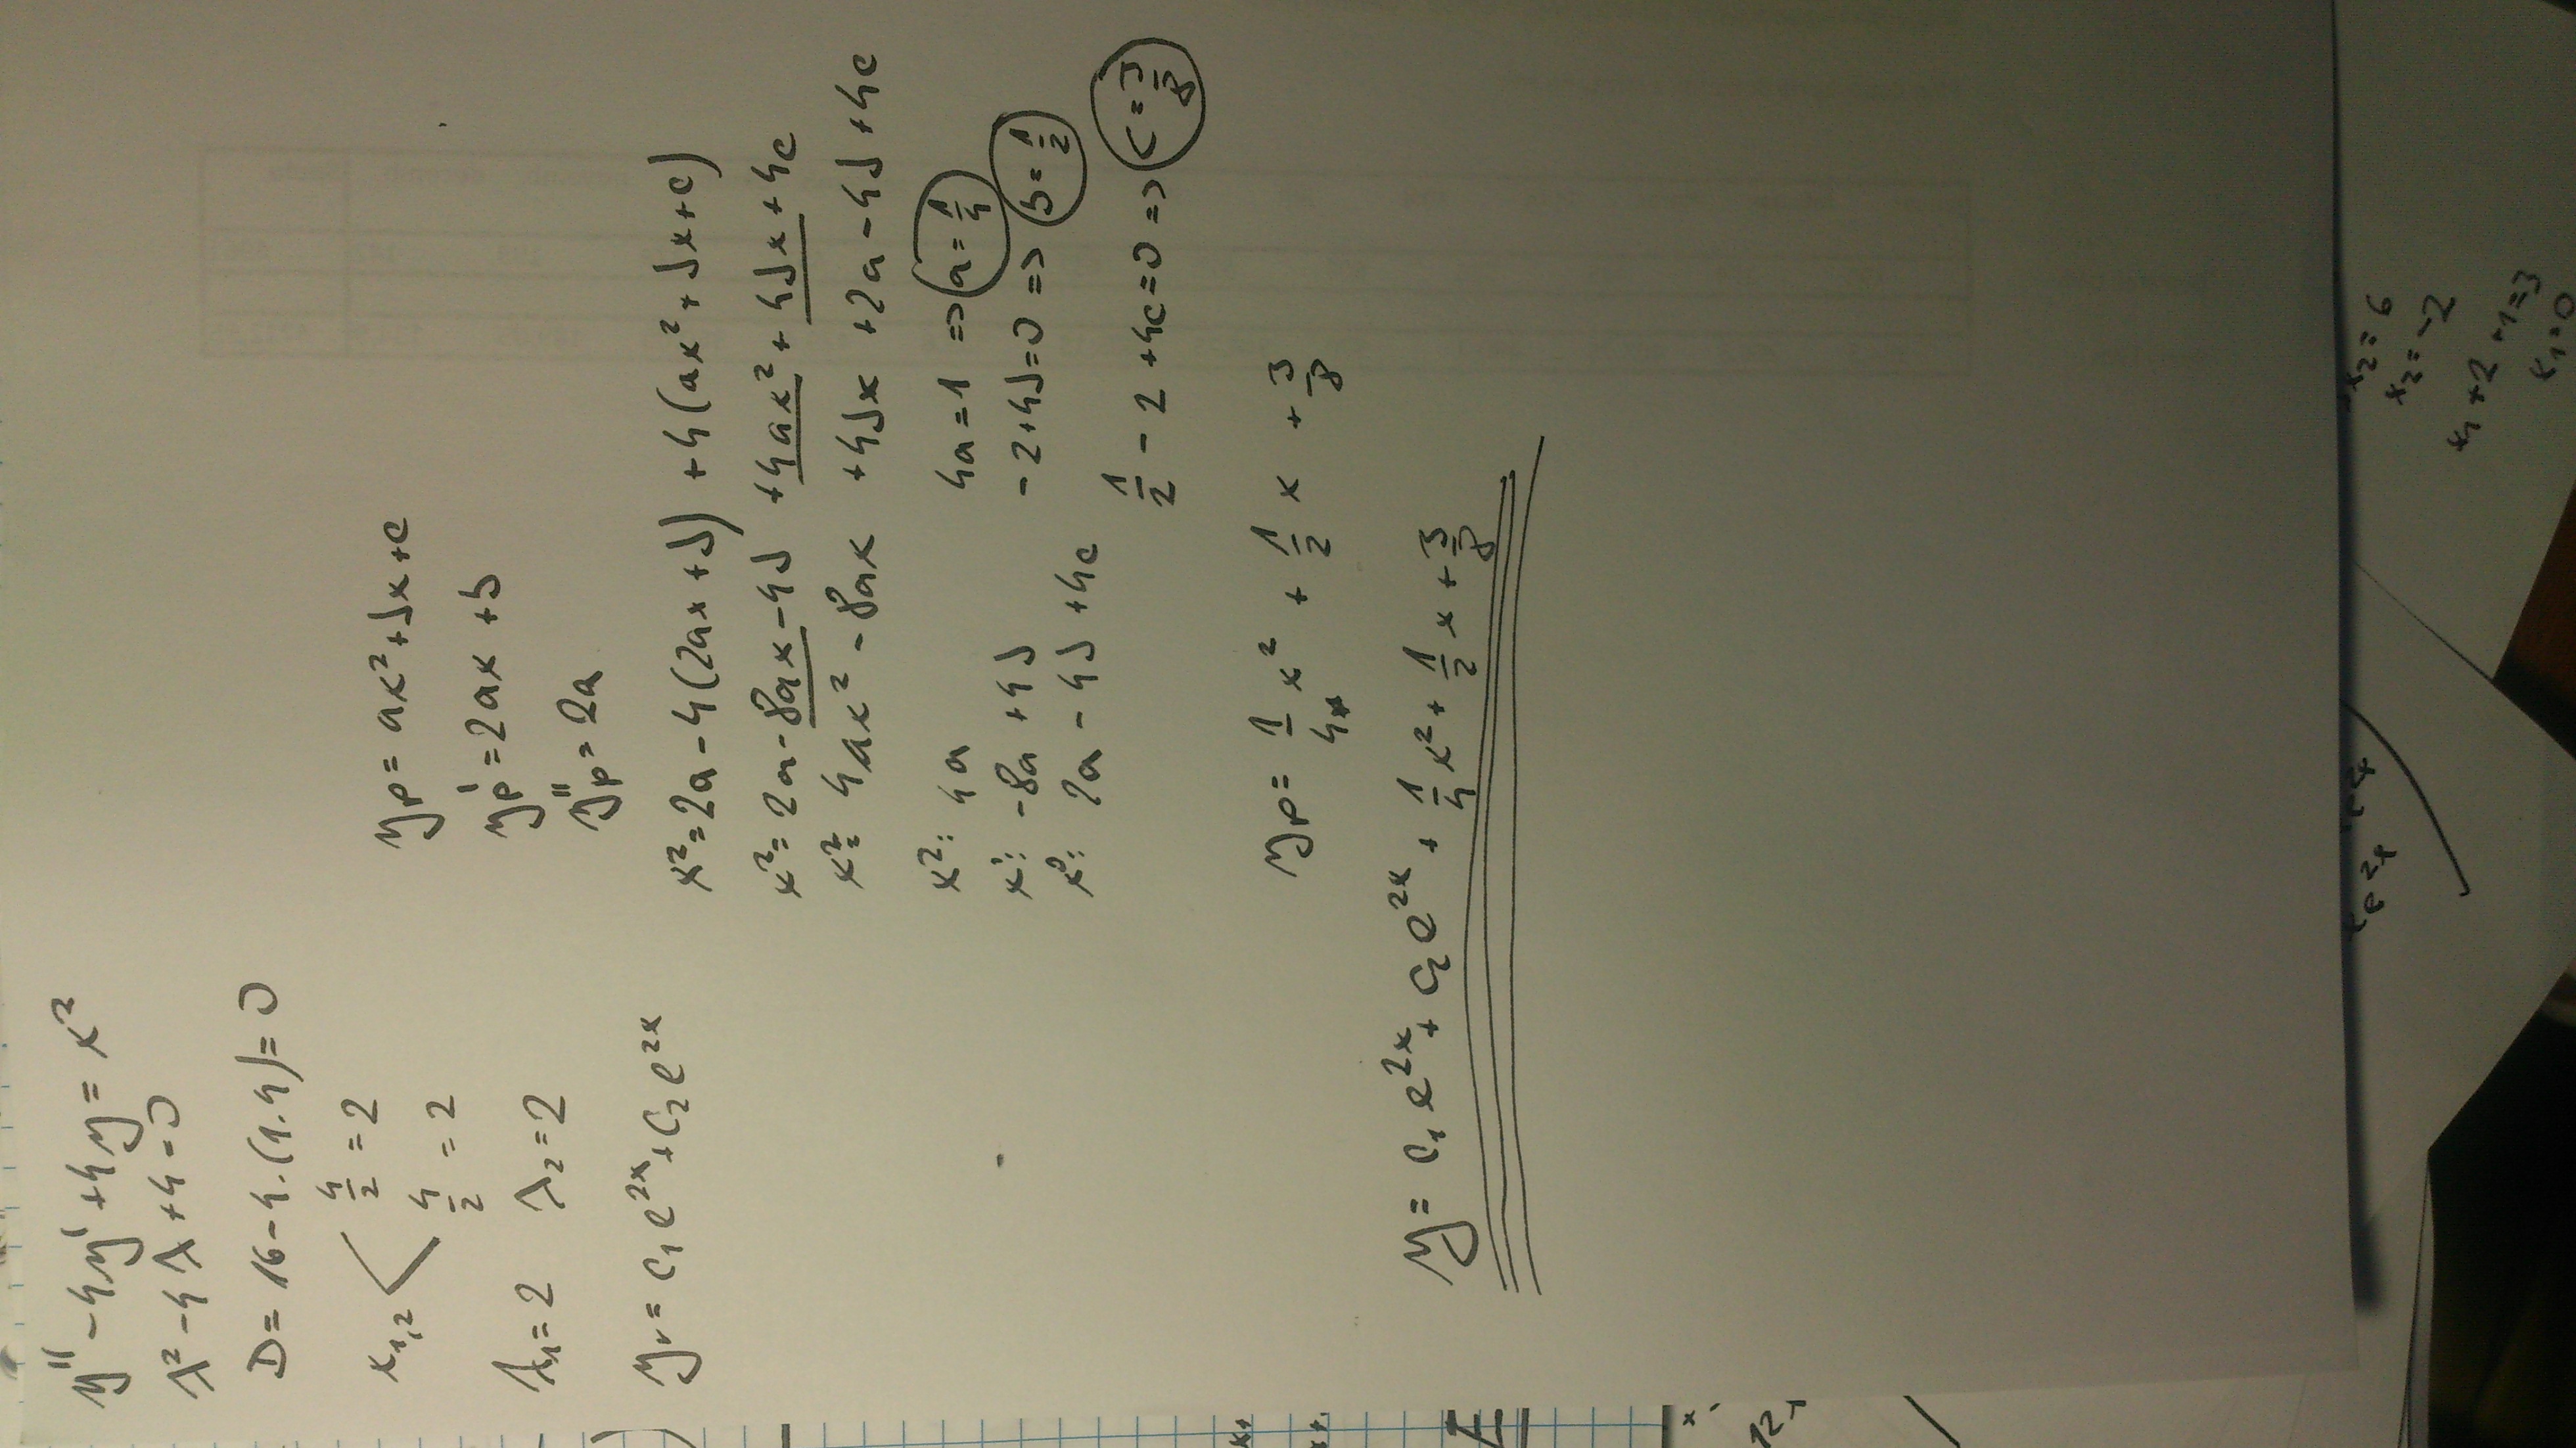 y'' - 4y' + 4y = x²
λ² - 4λ + 4 = 0
D = 16 - 4.(1.4) = 0
x₁,₂ < 4/2 = 2
4/2 = 2
λ₁ = 2 λ₂ = 2
yᵣ = c₁e^2x + c₂e^2x
yp = ax² + bx + c
yp' = 2ax + b
yp'' = 2a
x² = 2a - 4(2ax + b) + 4(ax² + bx + c)
x² = 2a - 8ax - 4b + 4ax² + 4bx + 4c
x² = 4ax² - 8ax + 4bx + 2a - 4b + 4c
x²: 4a 4a = 1 => a = 1/4
x¹: -8a + 4b -2 + 4b = 0 => b = 1/2
x⁰: 2a - 4b + 4c
1/2 - 2 + 4c = 0 => c = 3/8
yp = 1/4 x² + 1/2 x + 3/8
y = c₁e^2x + c₂e^2x + 1/4 x² + 1/2 x + 3/8
x₂ = 6
x₂ = -2
x₁ + 2 + 1 = 3
x₁ = 0